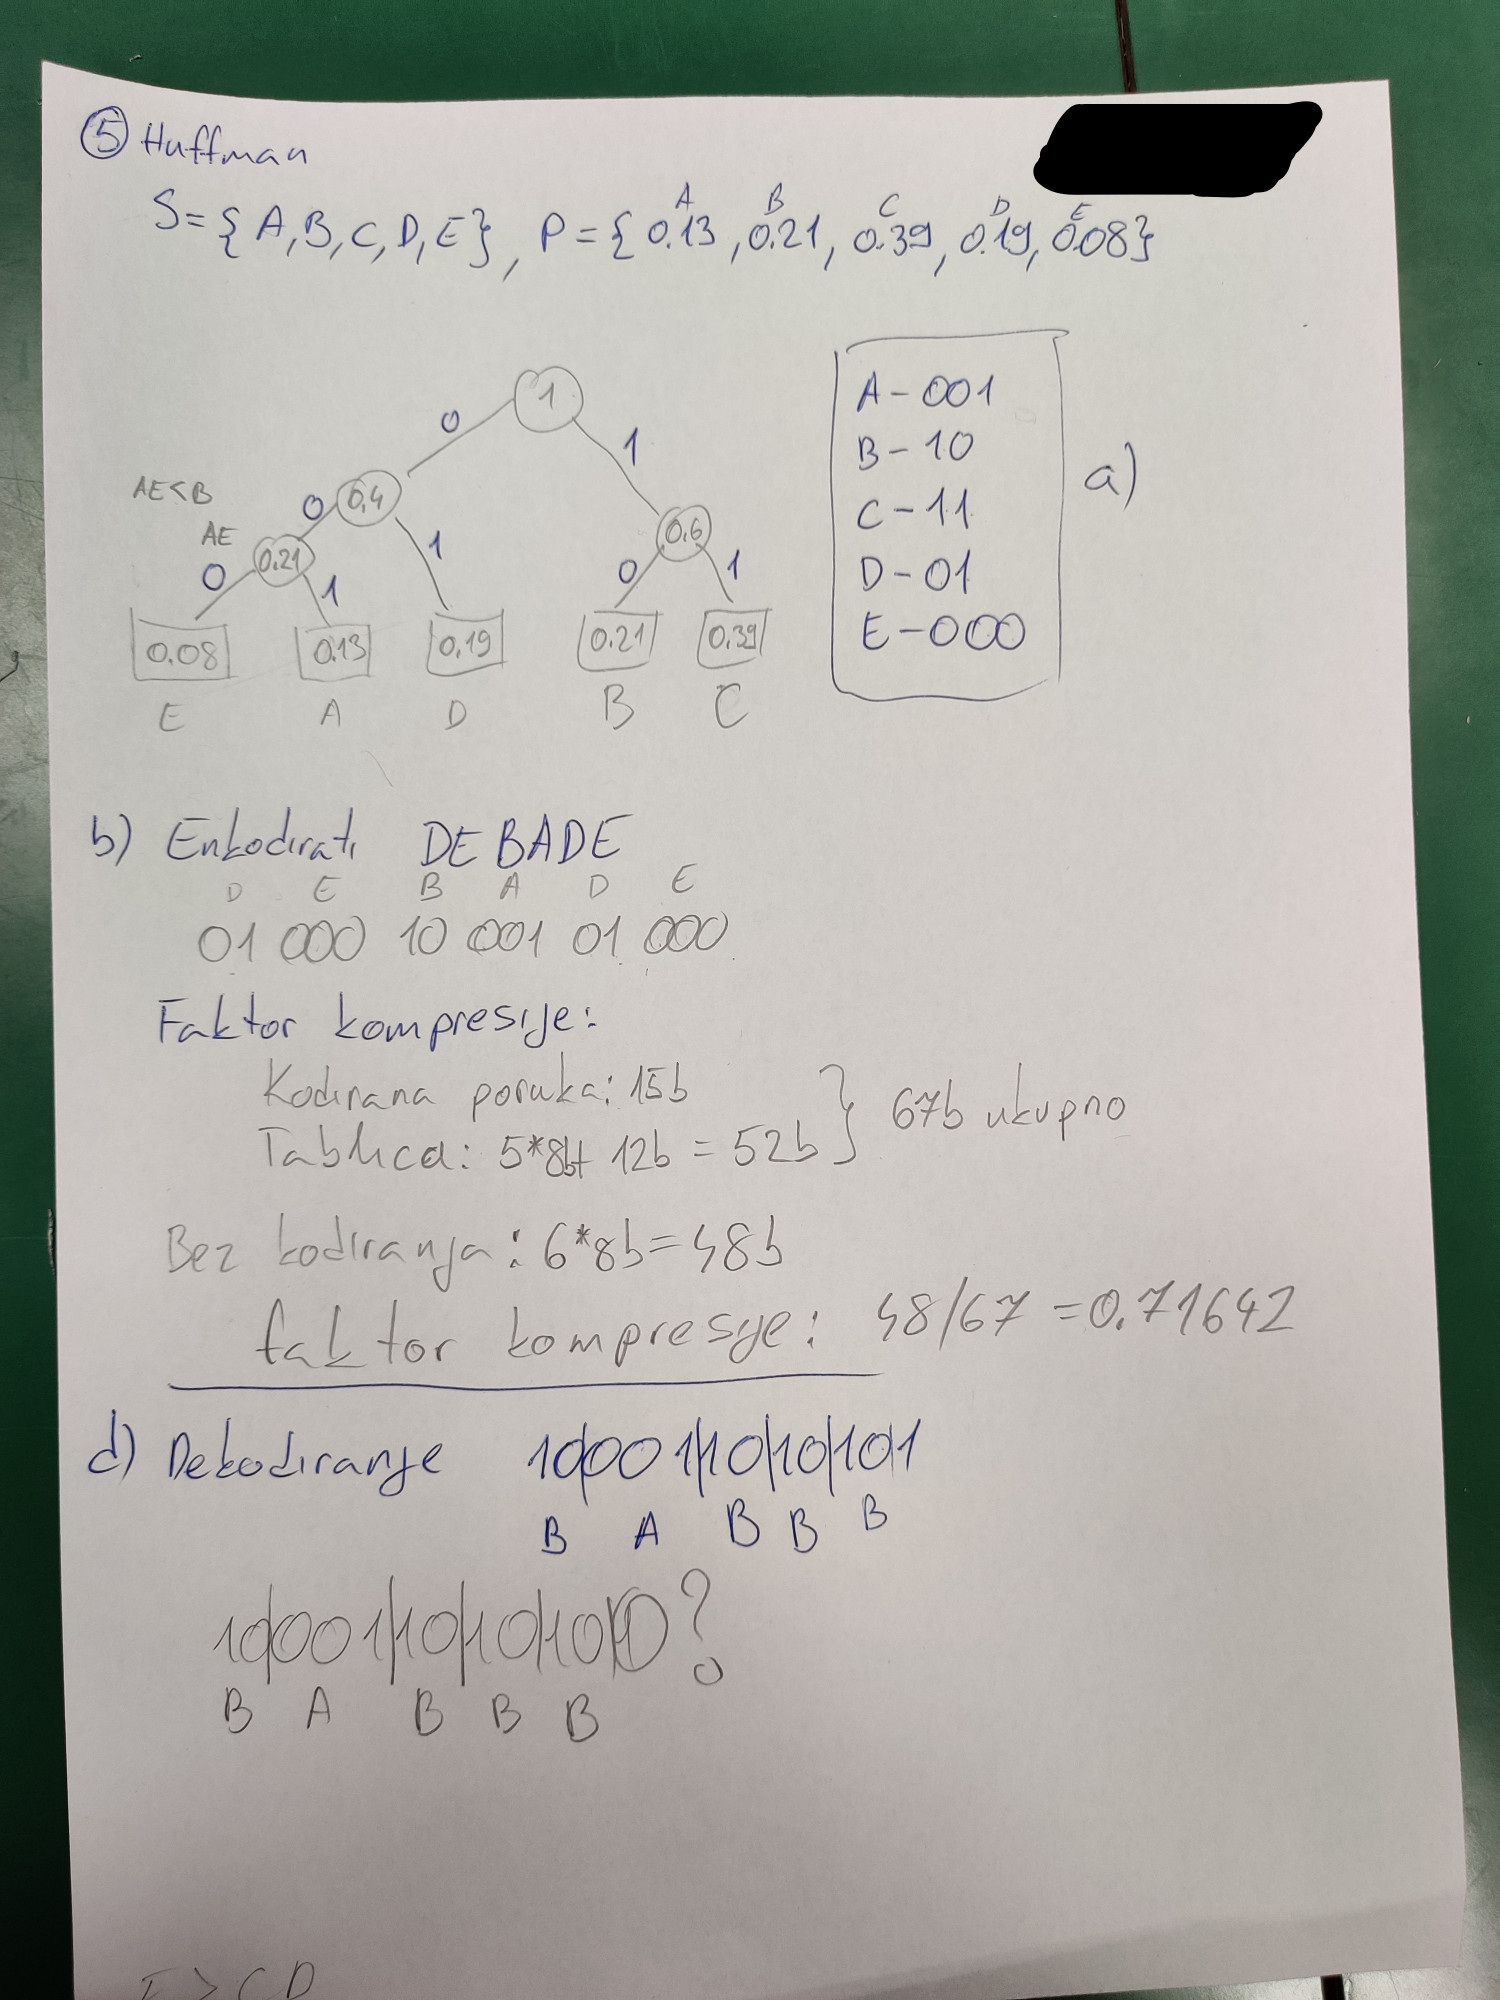 5 Huffman
S={A,B,C,D,E}, P={0.13, 0.21, 0.39, 0.19, 0.08}
A B C D E
1
0 1
AE<B 0 0,4 0.6
AE 0.21 1 0 1
0 1
0.08 0.13 0,19 0.21 0.39
E A D B C
A-001
B-10
C-11
D-01
E-000
a)
b) Enkodirati DEBADE
D E B A D E
01 000 10 001 01 000
Faktor kompresije:
Kodirana poruka: 15b
Tablica: 5*8b+ 12b = 52b } 67b ukupno
Bez kodiranja: 6*8b=48b
faktor kompresije: 48/67 = 0.71642
d) Dekodiranje 10|001|10|10|10|1
B A B B B
10|001|10|10|10|1 ?
B A B B B